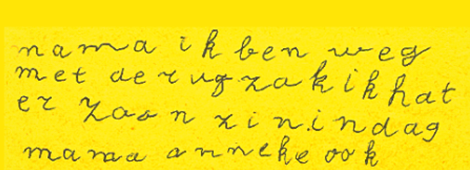 mama ik ben weg
met de rugzak ik hat
er zoo n zin in dag
mama anneke ook